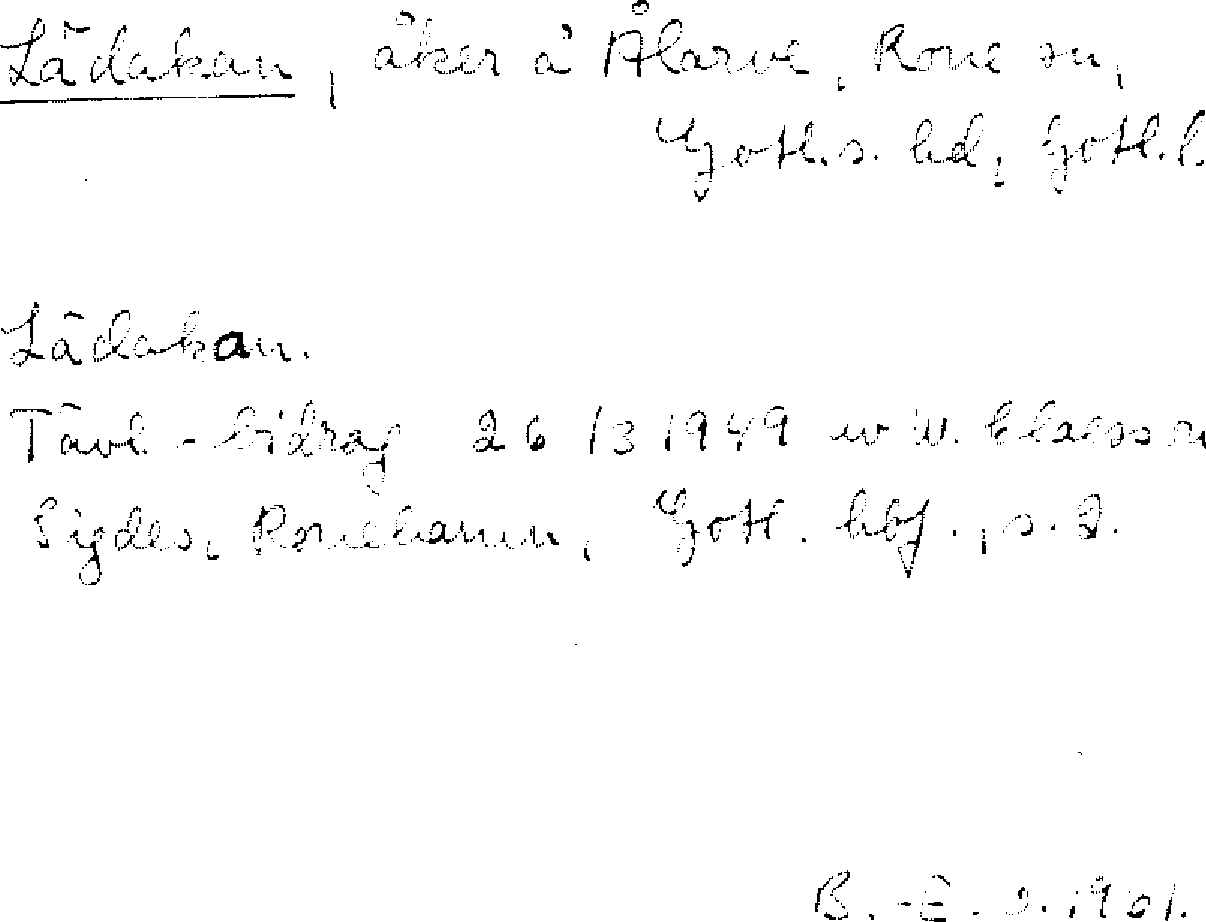 Lädakan, åker å Ålarve, Rone sn,
Gotl.s. hd, Gotl.l.
Lädakan.
Tävl.-bidrag 26/3 1949 av W. Claesson
Sigdes, Ronehamn, Gotl. hbf., s. 2.
B.-E. J. 1961.